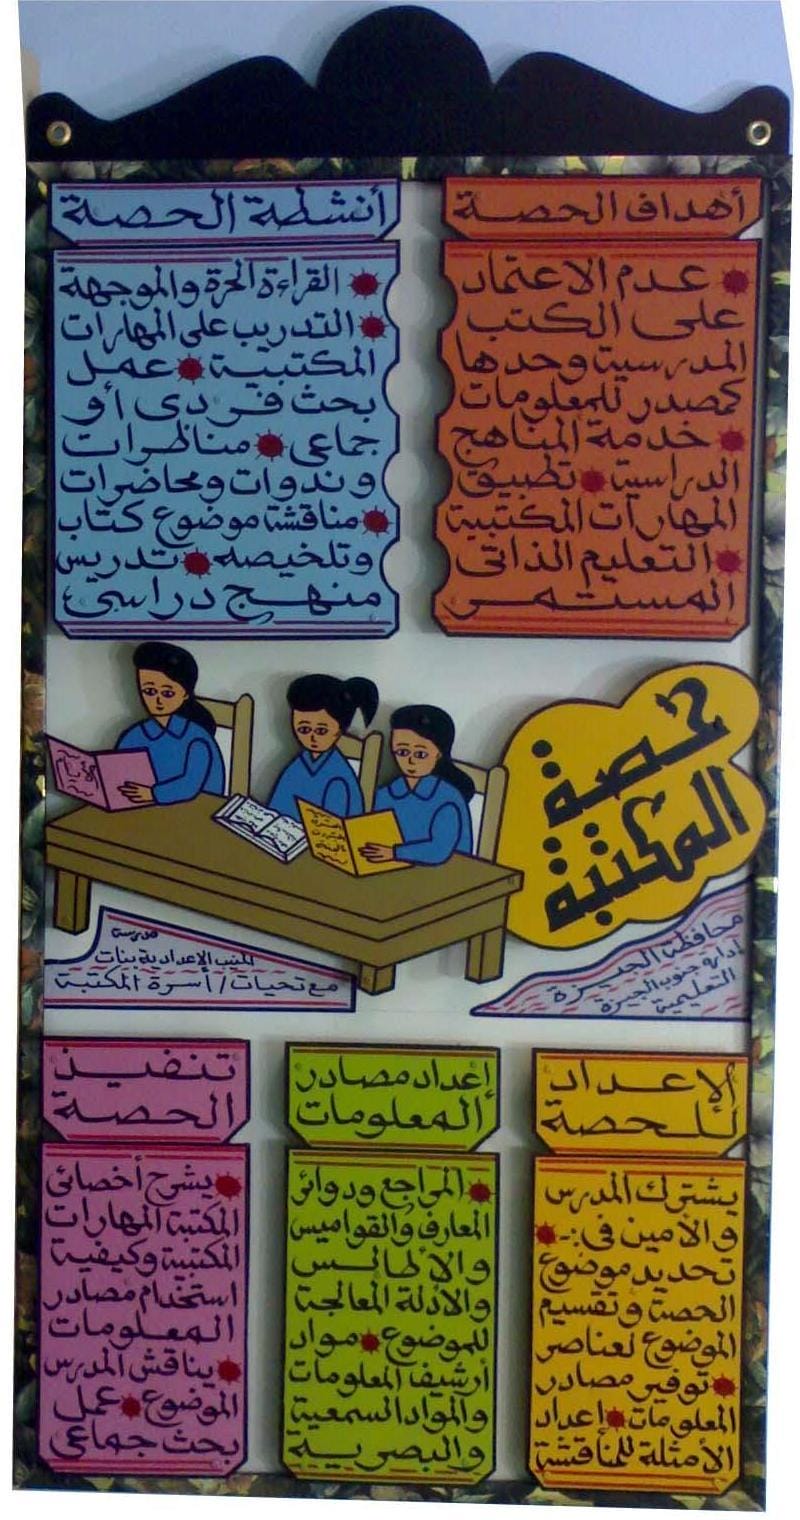 أهداف الحصة
عدم الاعتماد
على الكتب
المدرسية وحدها
كمصدر للمعلومات
خدمة المناهج
الدراسية تطبيق
المهارات المكتبية
التعليم الذاتى
المستمر
أنشطة الحصة
القراءة الحرة والموجهة
التدريب على المهارات
المكتبية عمل
بحث فردى أو
جماعى مناظرات
وندوات ومحاضرات
مناقشة موضوع كتاب
وتلخيصه تدريس
منهج دراسى
حصة
المكتبة
محافظة الجيزة
إدارة جنوب الجيزة
التعليمية
الأيام
مدرسة
المنيب الإعدادية بنات
مع تحيات / أسرة المكتبة
الإعداد
للحصة
يشترك المدرس
والأمين فى :-
تحديد موضوع
الحصة وتقسيم
الموضوع لعناصر
توفير مصادر
المعلومات إعداد
الأمثلة للمناقشة
إعداد مصادر
المعلومات
المراجع ودوائر
المعارف والقواميس
والأطالس
والأدلة المعالجة
للموضوع مواد
أرشيف المعلومات
والمواد السمعية
والبصرية
تنفيذ
الحصة
يشرح أخصائى
المكتبة المهارات
المكتبية وكيفية
استخدام مصادر
المعلومات
يناقش المدرس
الموضوع عمل
بحث جماعى